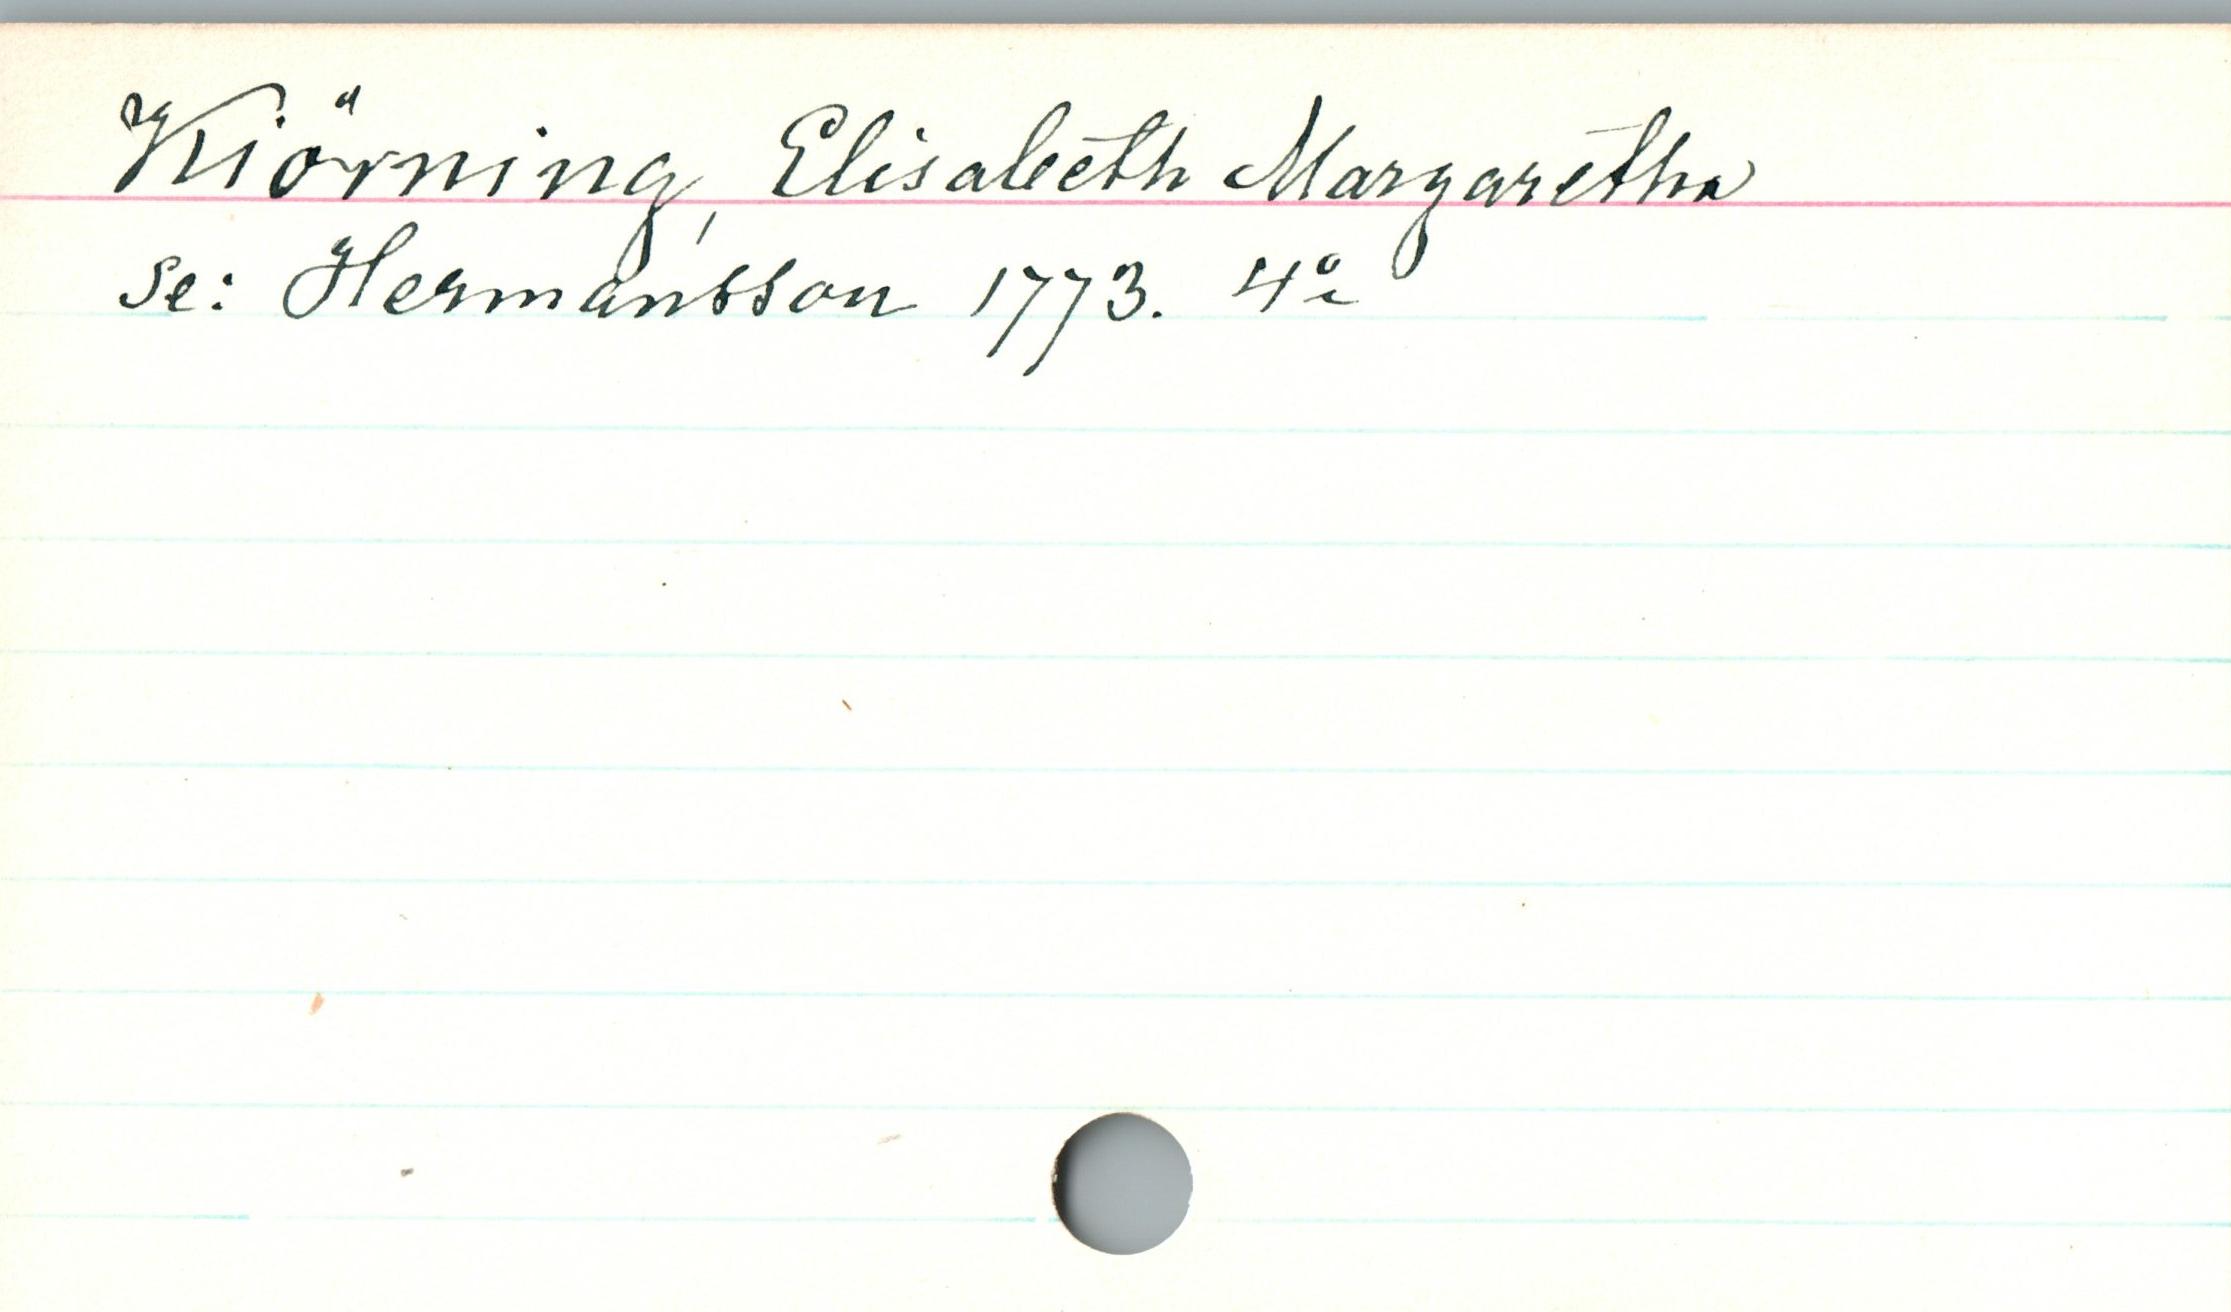 Kiörning, Elisabeth Margaretha
se: Hermansson 1773. 4º